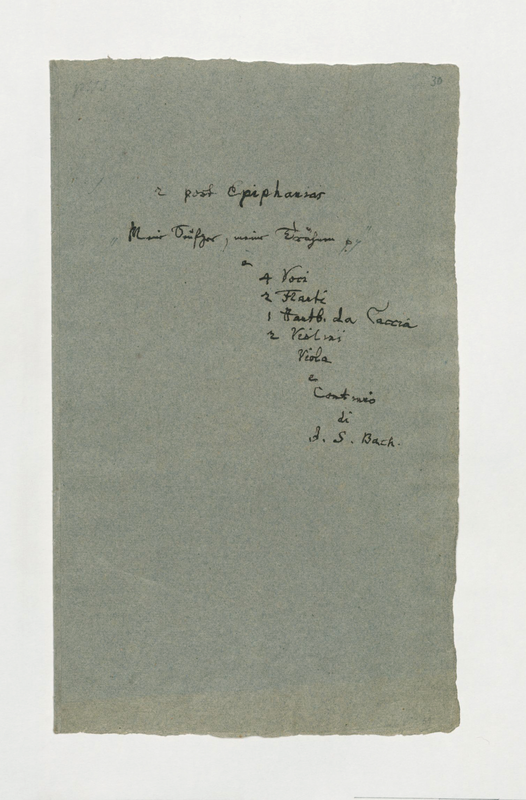 30
2 post Epiphanias
„Meine Seufzer, meine Thränen pp"
a
4 Voci
2 Flauti
1 Hautb. da Caccia
2 Violini
Viola
e
Continuo
di
J. S. Bach.